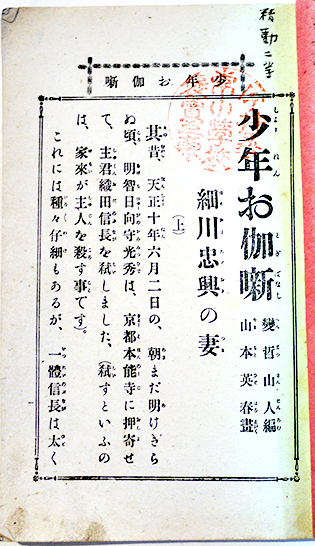 少年お伽噺
少年お伽噺
變哲山人編
山本英春畫
細川忠興の妻
(上)
其昔、天正十年六月二日の、朝まだ明けきら
ぬ頃、明智日向守光秀は、京都本能寺に押寄せ
て、主君織田信長を弑しました、(弑すといふの
は、家來が主人を殺す事です)。
これには種々仔細もあるが、一體信長は太く